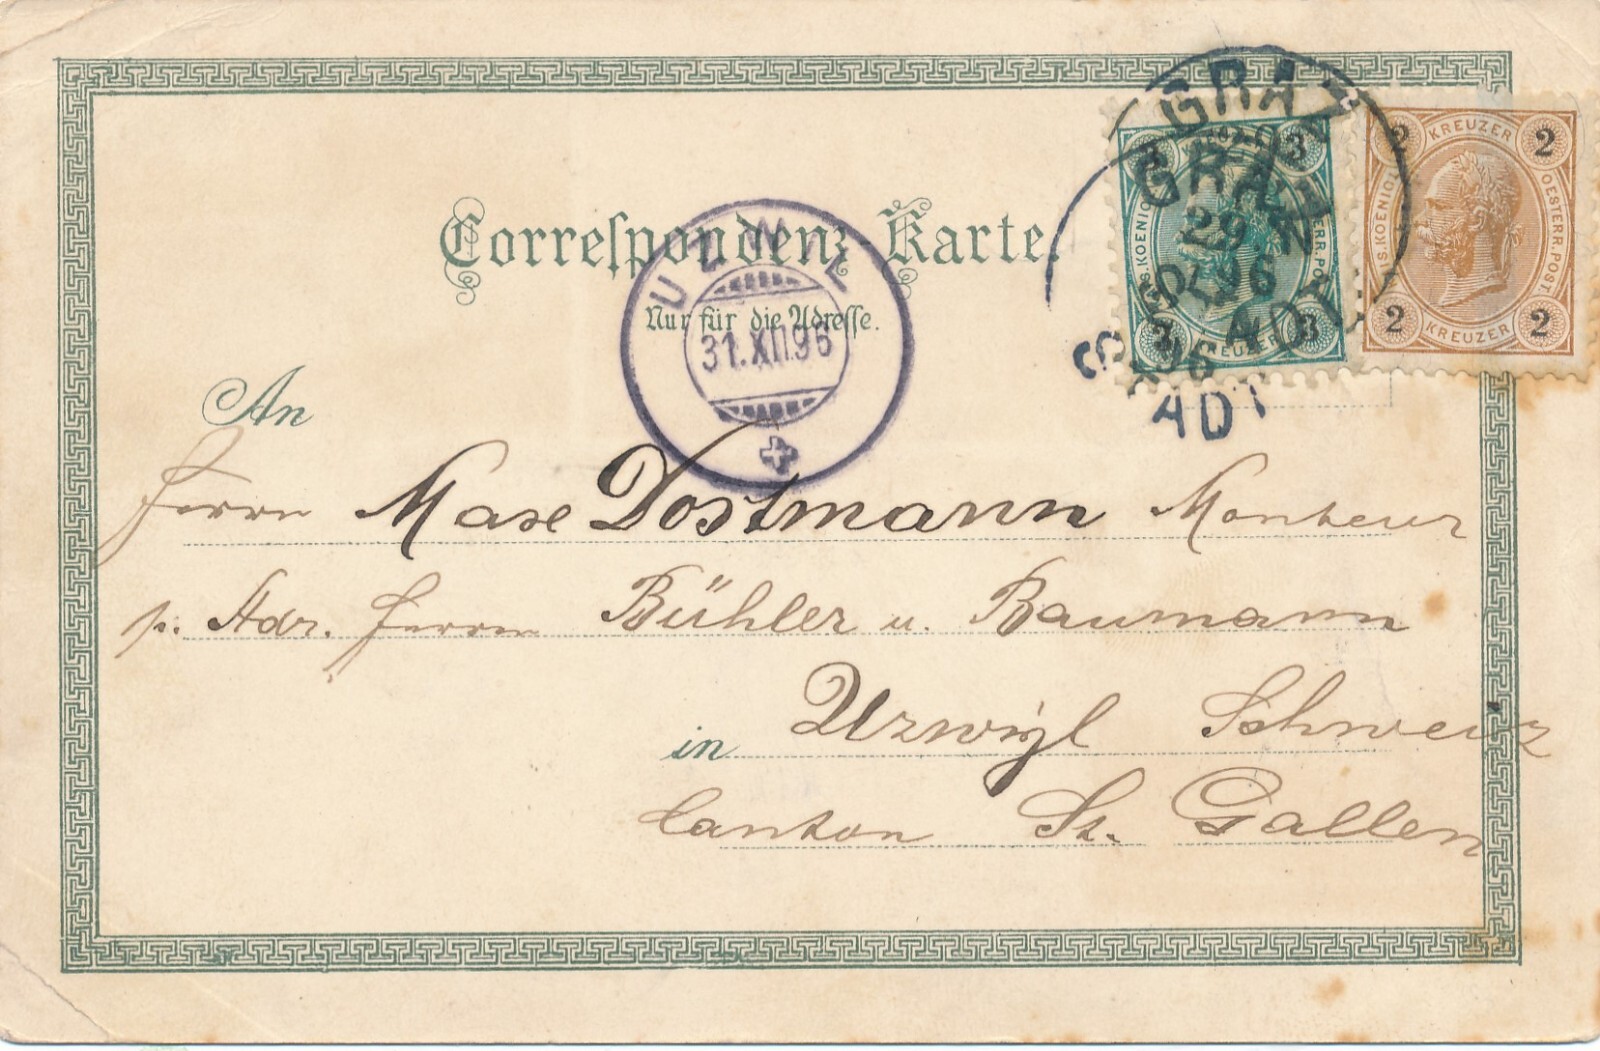 Correspondenz-Karte.
Nur für die Adresse.
UZWIL
31.XII.96
GRAZ
GRAZ
29
96
96
STADT
3
3
3
3
KREUZER
2
KREUZER
2
OESTERR.POST
2
KREUZER
2
An
Herrn Max Dostmann Monteur
p. Adr. Herrn Bühler u. Baumann
in Uzwyl Schweiz
Canton St. Gallen